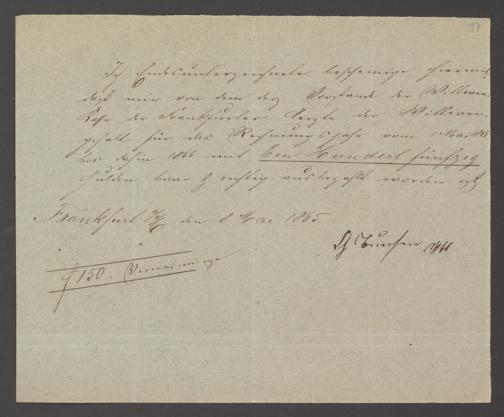 Ich Endesunterzeichnete bescheinige hiermit,
daß mir von dem derz. Vorstande der Wittwen-
Kasse der Frankfurter Aerzte der Wittwen-
gehalt für das Rechnungsjahr vom 1 Mai 1865
bis dahin 1866 mit Ein Hundert fünfzig
Gulden baar & richtig ausbezahlt worden ist
Frankfurt a/M den 8 Mai 1865
Bunsen
f 150. Vereinsmünze